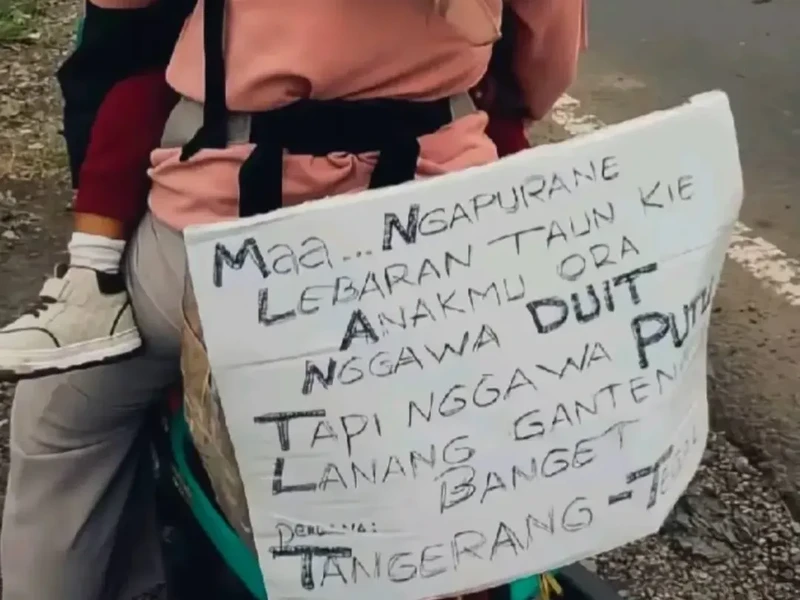 Maa... NGAPURANE
LEBARAN TAUN KIE
ANAKMU ORA
NGGAWA DUIT
TAPI NGGAWA PUTU
LANANG GANTENG
BANGET
TANGERANG-TEGAL